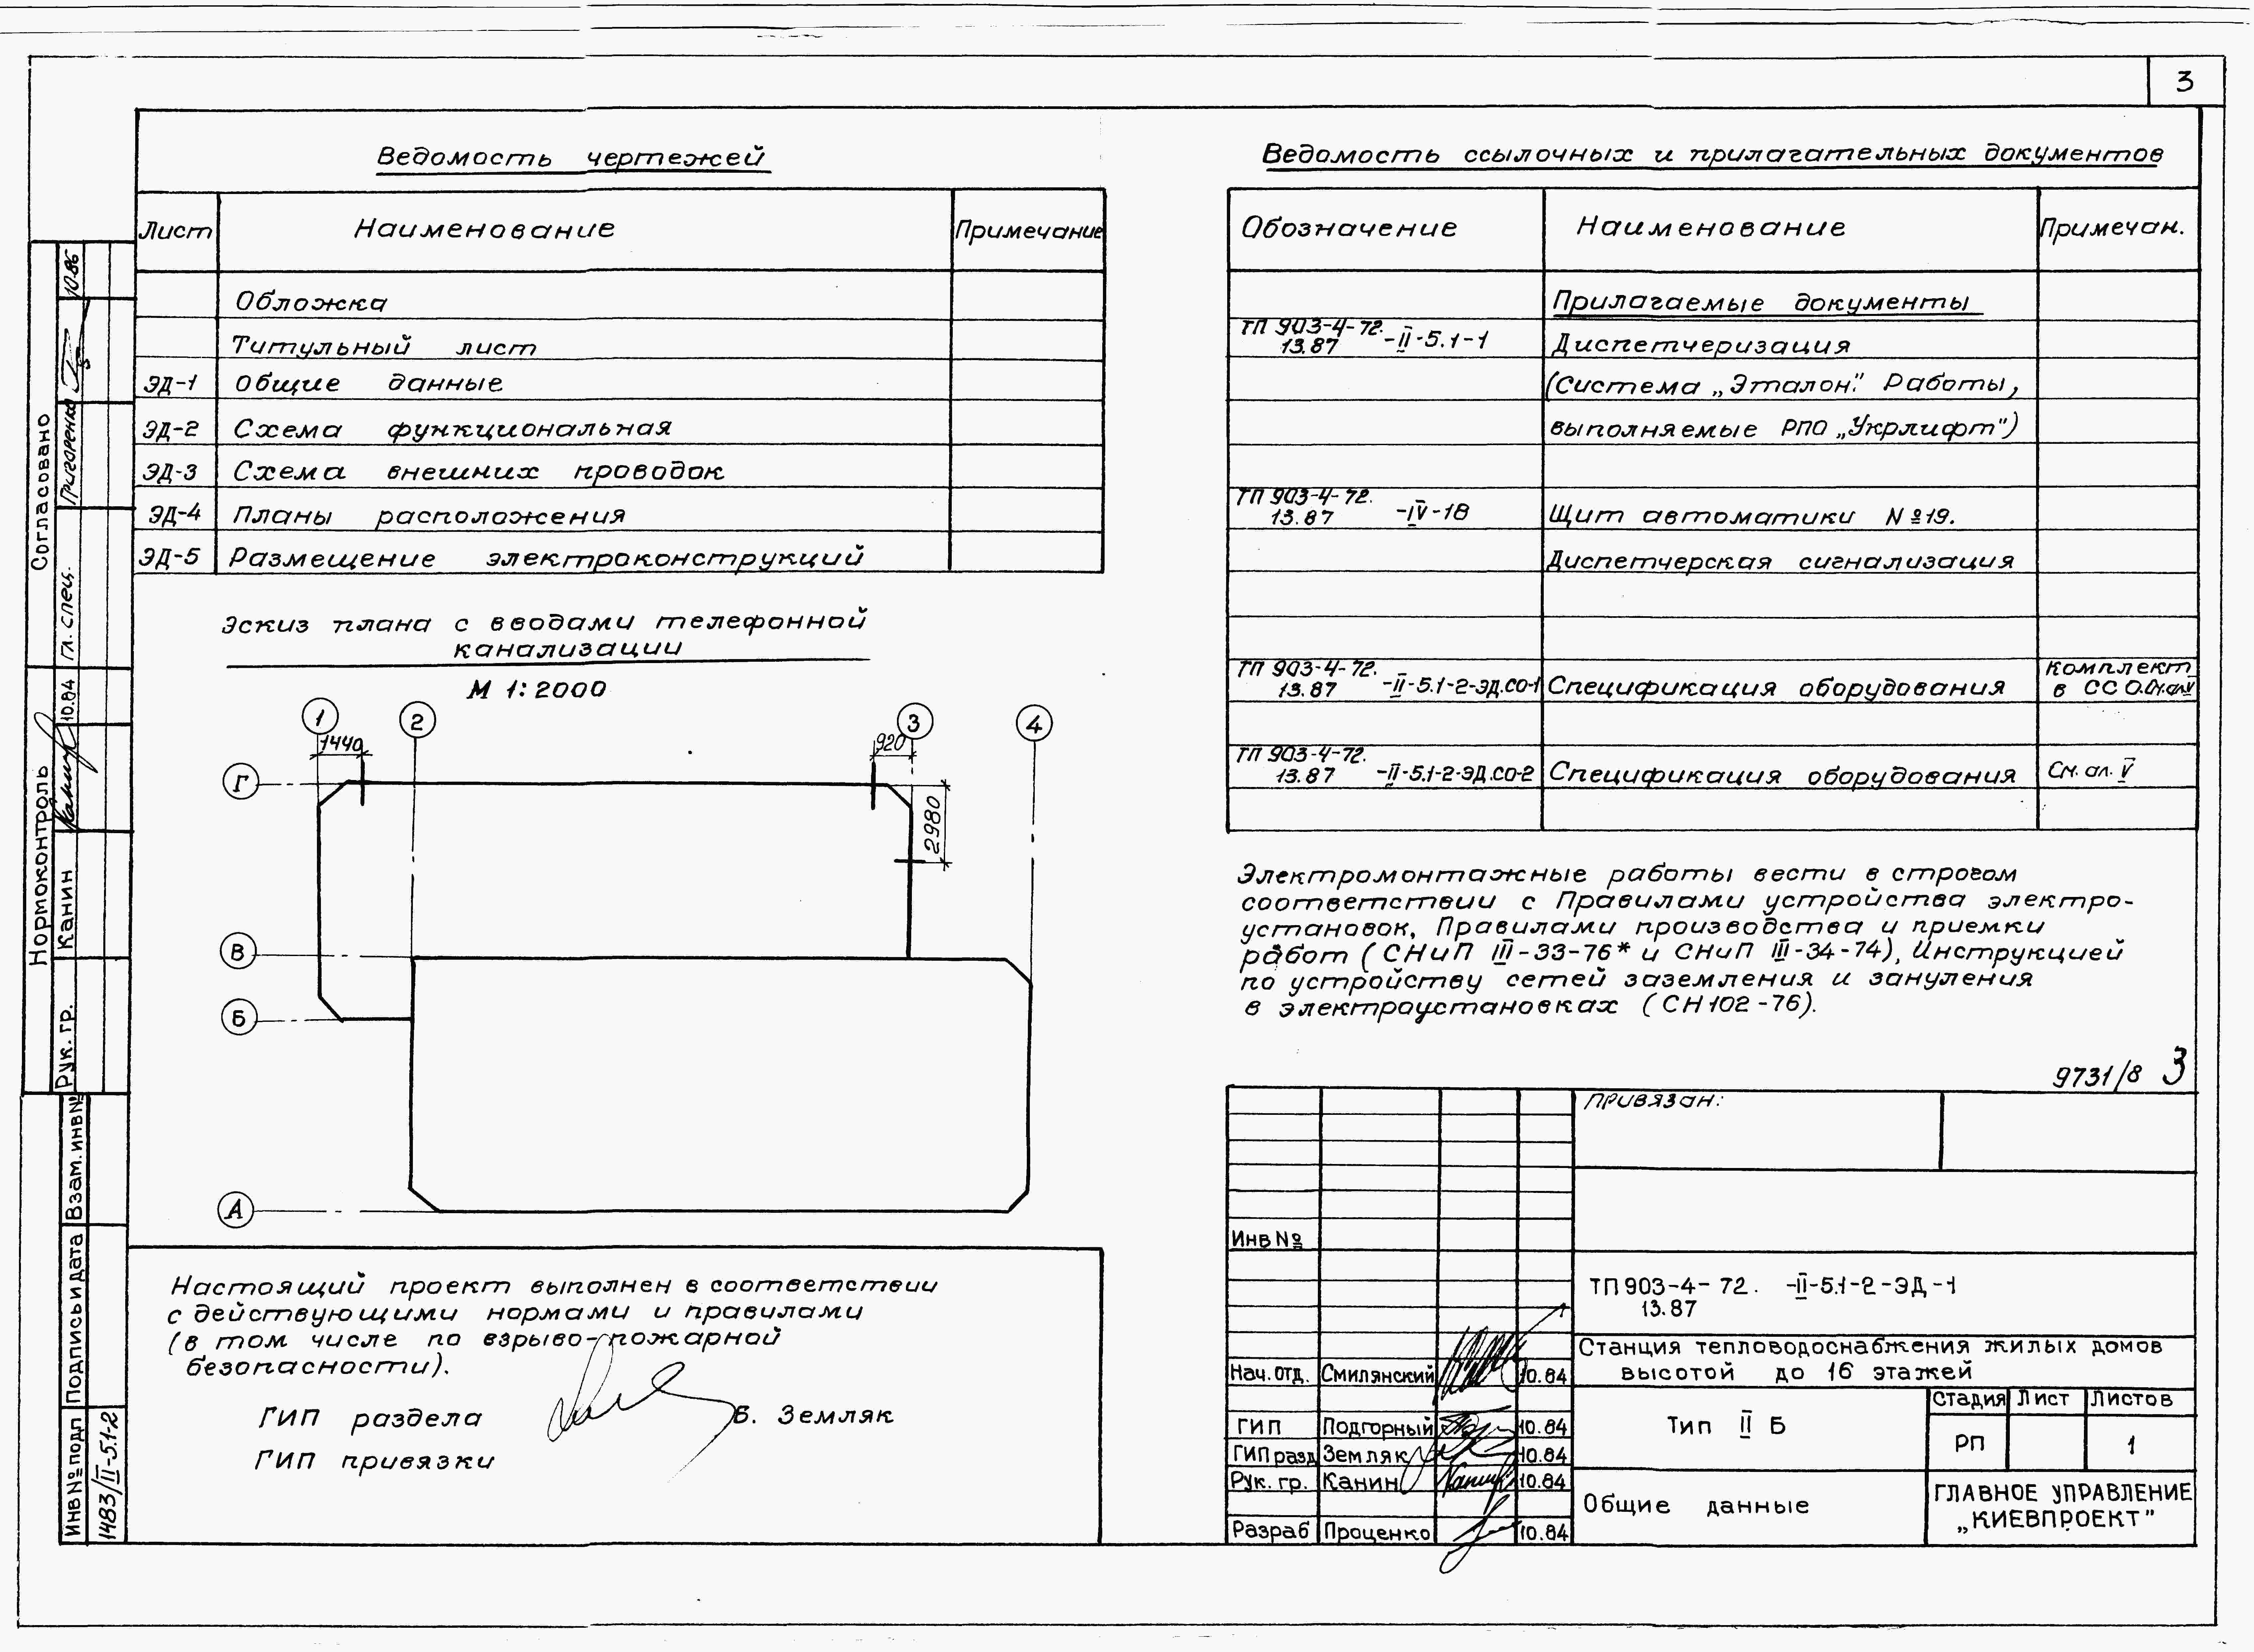 3
Ведомость чертежей
Лист Наименование Примечание
Обложка
Титульный лист
ЭД-1 Общие данные
ЭД-2 Схема функциональная
ЭД-3 Схема внешних проводок
ЭД-4 Планы расположения
ЭД-5 Размещение электроконструкций
Эскиз плана с вводами телефонной
канализации
М 1:2000
1 2 3 4
1440 920
Г
2980
В
Б
А
Настоящий проект выполнен в соответствии
с действующими нормами и правилами
(в том числе по взрыво-пожарной
безопасности).
ГИП раздела Б. Земляк
ГИП привязки
Ведомость ссылочных и прилагательных документов
Обозначение Наименование Примечан.
Прилагаемые документы
ТП 903-4-72.
13.87 -II-5.1-1 Диспетчеризация
(Система „Эталон". Работы,
выполняемые РПО „Укрлифт")
ТП 903-4-72.
13.87 -IV-18 Щит автоматики №19.
Диспетчерская сигнализация
ТП 903-4-72. Комплект
13.87 -II-5.1-2-ЭД.СО-1 Спецификация оборудования в ССО.См.ал.V
ТП 903-4-72.
13.87 -II-5.1-2-ЭД.СО-2 Спецификация оборудования См. ал. V
Электромонтажные работы вести в строгом
соответствии с Правилами устройства электро-
установок, Правилами производства и приемки
работ (СНиП III-33-76* и СНиП III-34-74), Инструкцией
по устройству сетей заземления и зануления
в электроустановках (СН102-76).
9731/8 3
Привязан:
Инв №
ТП 903-4-72. -II-5.1-2-ЭД-1
13.87
Станция тепловодоснабжения жилых домов
высотой до 16 этажей
Нач. отд. Смилянский 10.84
ГИП Подгорный 10.84
ГИП разд Земляк 10.84
Рук. гр. Канин 10.84
Разраб Проценко 10.84
Тип II Б
Стадия Лист Листов
РП 1
Общие данные
ГЛАВНОЕ УПРАВЛЕНИЕ
„КИЕВПРОЕКТ"
Согласовано
Гл. спец. Григоренко 10.86
Нормоконтроль
Рук. гр. Канин 10.84
Взам. инв №
Подпись и дата
Инв № подп
1483/II-5.1-2